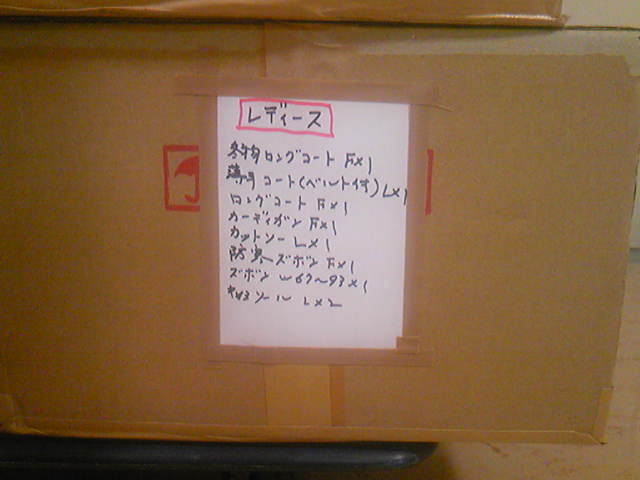 レディース
冬物ロングコート F×1
薄手コート(ベルト付) L×1
ロングコート F×1
カーディガン F×1
カットソー L×1
防寒ズボン F×1
ズボン W67～93×1
キャミソール L×2